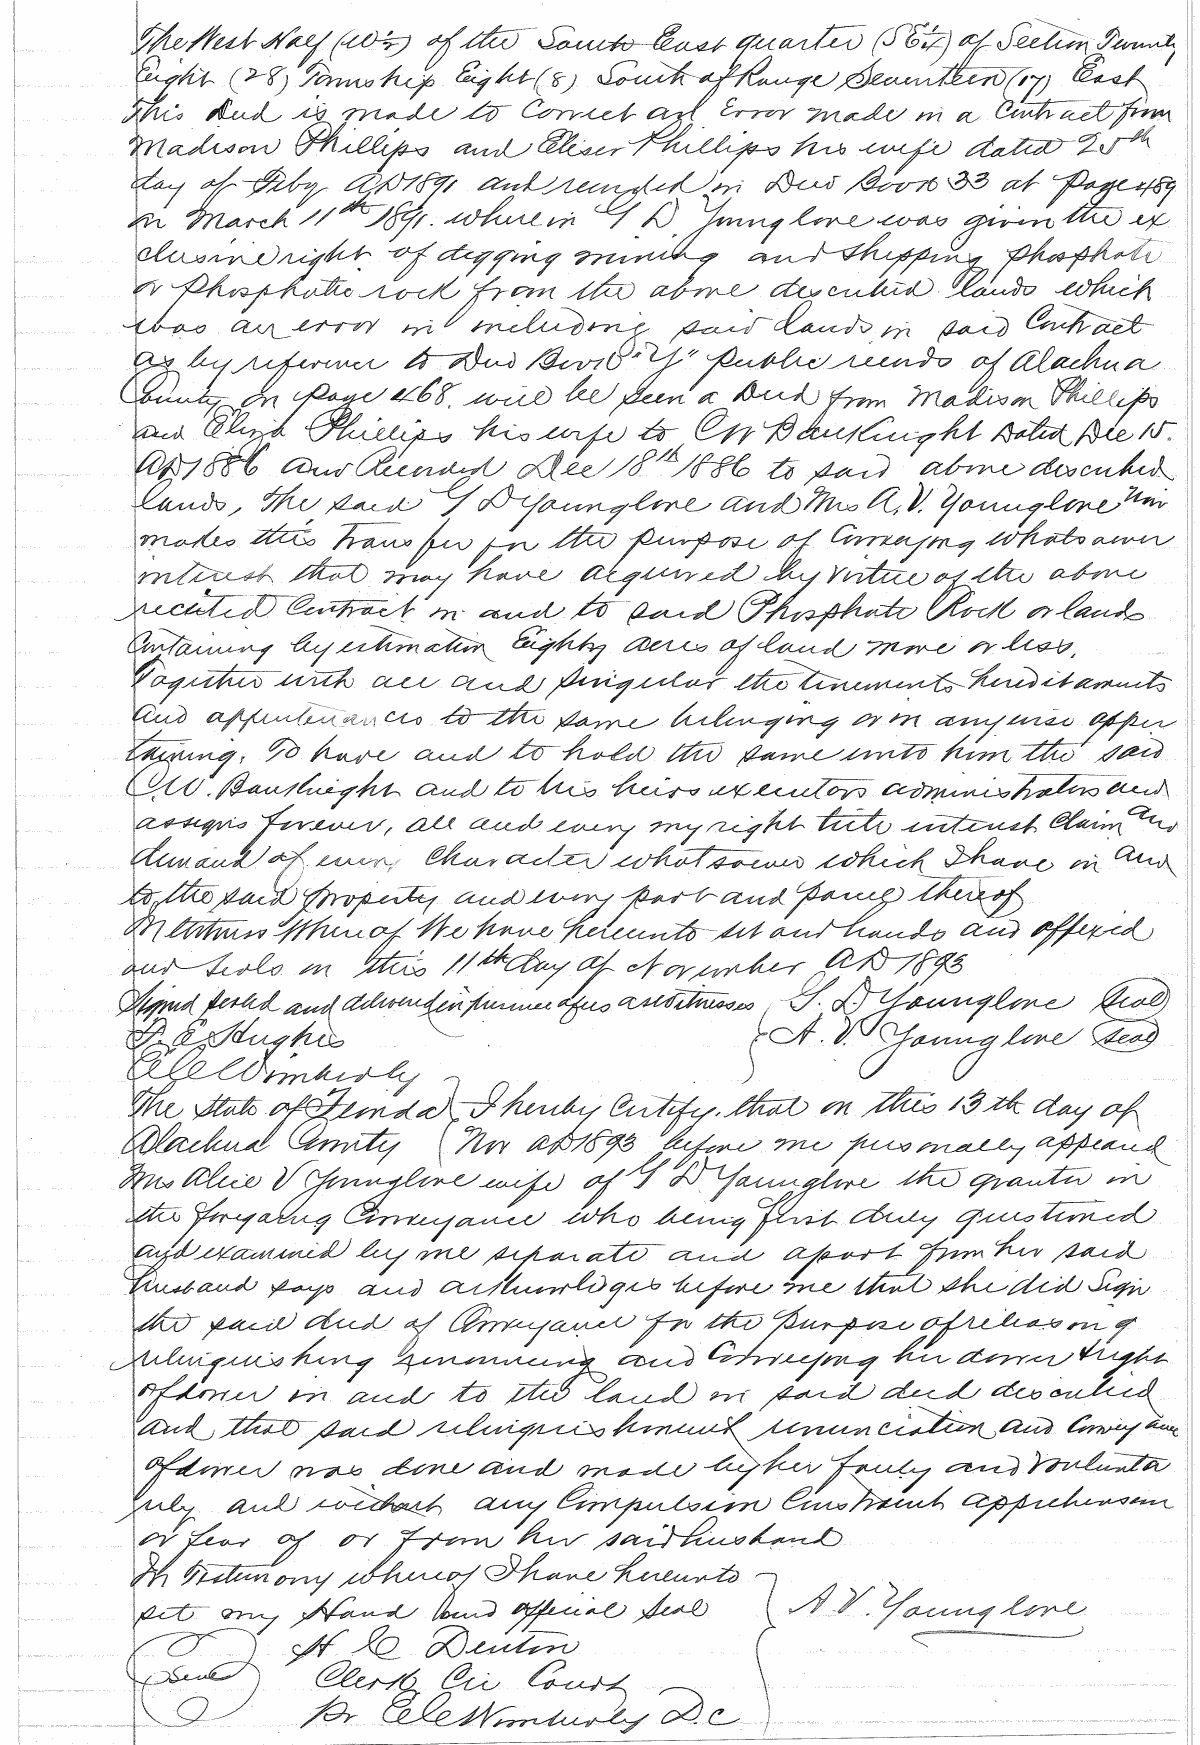 The West Half (W½) of the South East quarter (SE¼) of Section Twenty
Eight (28) Township Eight (8) South of Range Seventeen (17) East
This Deed is made to Correct an Error made in a Contract from
Madison Phillips and Eliser Phillips his wife dated 25th
day of Feby AD 1891 and recorded in Deed Book 33 at page 489
on March 11th 1891. wherein G D. Younglove was given the ex
clusive right of digging mining and shipping phosphate
or phosphatic rock from the above described lands which
was an error in including said lands in said Contract
as by reference to Deed Book "Y" public records of Alachua
County on page 468. will be seen a Deed from Madison Phillips
and Eliza Phillips his wife to C W Bauknight Dated Dec 15.
AD 1886 and Recorded Dec 18th 1886 to said above described
lands, The said G D Younglove and Mrs A. V. Younglove now
makes this transfer for the purpose of Conveying whatsoever
interest that may have acquired by virtue of the above
recited Contract in and to said Phosphate Rock or lands
Containing by estimation Eighty acres of land more or less,
Together with all and singular the tenements hereditaments
and appurtenances to the same belonging or in anywise apper
taining. To have and to hold the same unto him the said
C.W. Bauknight and to his heirs executors administrators and
assigns forever, all and every my right title interest Claim and
demand of every Character whatsoever which I have in and
to the said property and every part and parcel thereof
In Witness Whereof We have hereunto set and hands and affixed
and Seals on this 11th day of November AD 1893
Signed sealed and delivered in presence of us as witnesses G. D. Younglove Seal
P. E. Hughes A. V. Younglove Seal
C C Wimberly
The State of Florida I hereby Certify. that on this 13th day of
Alachua County Nov AD 1893 before me personally appeared
Mrs Alice V Younglove wife of G D Younglove the grantor in
the foregoing Conveyance who being first duly questioned
and examined by me separate and apart from her said
husband says and acknowledges before me that she did Sign
the said deed of Conveyance for the purpose of releasing
relinquishing renouncing and Conveying her dower & right
of dower in and to the land in said deed described
and that said relinquishment renunciation and Conveyance
of dower was done and made by her freely and volunta
rily and without any Compulsion Constraint apprehension
or fear of or from her said husband
In Testimony whereof I have hereunto
set my Hand and official Seal A. V. Younglove
H C Denton
Seal Clerk Cir Court
Pr C C Wimberly D.C